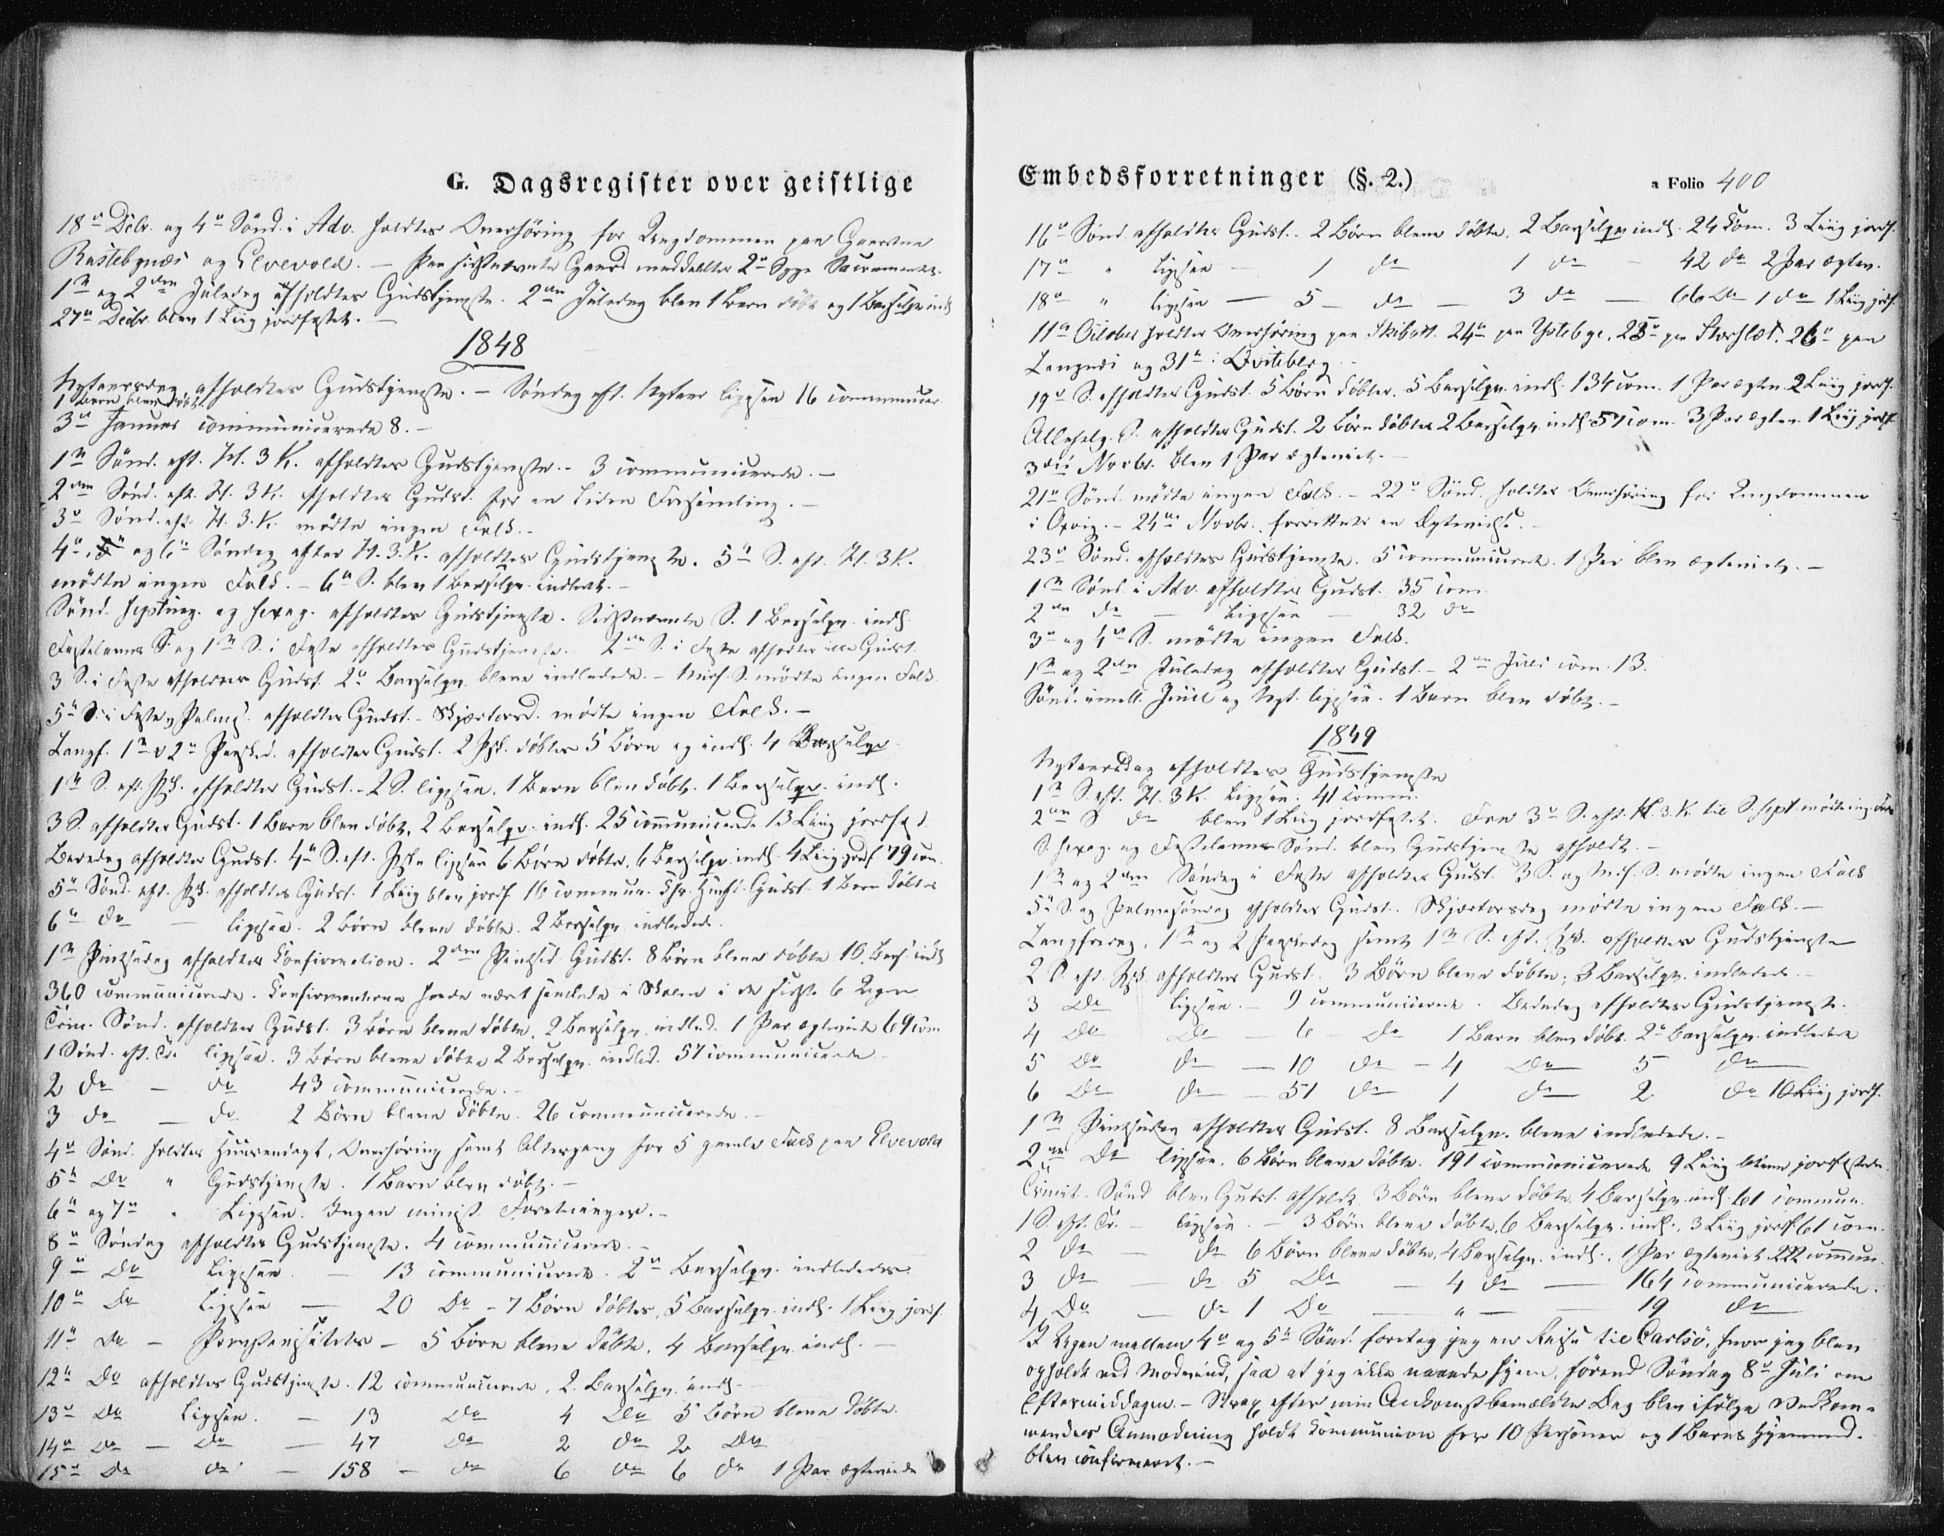 G. Dagsregister over geistlige
18de Decbr. og 4de Sønd. i Adv. holdtes Overhøring for Ungdommen paa Gaardene
Rastebynæs og Elvevold. — Paa sidstnævnte Gaard meddeeltes 2de Syge Sacramentet.
1ste og 2den Juledag afholdtes Gudstjeneste. 2den Juledag blev 1 Barn døbt og 1 Barselqv. indl.
27de Decbr. blev 1 Liig jordfæstet. —
1848
Nytaarsdag afholdtes Gudstjeneste. — Søndag eft. Nytaar ligesaa 16 communicer.
1 Barn blev døbt
3de Januar communicerede 8. —
1ste Sønd. eft. H. 3 K. afholdtes Gudstjeneste. - 3 communicerede. —
2den Sønd. eft. H. 3 K. afholdtes Gudst. for en liden Forsamling. —
3de Sønd. eft. H. 3. K. mødte ingen Folk. -
4de, og 6te Søndag efter H. 3. K. afholdtes Gudstjeneste. 5te S. eft. H. 3 K.
mødte ingen Folk. — 6te S. blev 1 Barselqv. indledt. —
Sønd. Septuag. og Sexag. afholdtes Gudstjeneste. Sidstnævnte S. 1 Barselqv. indl.
Fastelavns S. og 1ste S. i Faste afholdtes Gudstjeneste. 2den S. i Faste afholdtes ikke Gudst.
3 S. i Faste afholdtes Gudst. 2de Barselqv. bleve indledede. — Midf. S. mødte ingen Folk.
5te S. i Faste og Palmes. afholdtes Gudst. — Skjærtorsd. mødte ingen Folk. —
Langf. 1ste & 2den Paasked. afholdtes Gudst. 2 Psk. døbtes 5 Børn og indl. 4 Barselqv.
1ste S. eft. Psk. afholdtes Gudst. — 2 S. ligesaa. 1 Barn blev døbt. 1 Barselqv. indl.
3 S. afholdtes Gudst. 1 Barn blev døbt, 2 Barselqv. indl. 25 communicerede 13 Liig jordfæst.
Bededag afholdtes Gudst. 4de S. eft. Psk. ligesaa 6 Børn døbte, 6 Barselqv. indl. 4 Liig jordf. 79 com.
5te Sønd. eft. Psk. afholdtes Gudst. 1 Liig blev jordf. 16 commun. Chr. Himf. Gudst. 1 Barn døbtes
6te do — ligesaa. 2 Børn bleve døbte. 2 Barselqv. indledede.
1ste Pintsedag afholdtes Confirmation. 2den Pintsed. Gudst. 8 Børn bleve døbte 10 Bars. indl.
360 communicerede. Confirmanterne havde været samlede i Skolen i de sidste 6 Uger
Trin. Sønd. afholdtes Gudst. 3 Børn bleve døbte, 2 Barselqv. indled. 1 Par ægteviet 69 com.
1 Sønd. eft. Tr. ligesaa. 3 Børn bleve døbte 2 Barselqv. indled. 57 communicerede
2 do — do 43 communicerede. -
3 do — do 2 Børn bleve døbte. 26 communicerede. —
4de Sønd. holdtes Huusandagt, Overhøring samt Altergang for 5 gamle Folk paa Elvevold
5te do " Gudstjeneste. 1 Barn blev døbt. —
6te og 7de " Ligesaa. Ingen minist. Forretninger. —
8de Søndag afholdtes Gudstjeneste. 4 communicerede. —
9de do Ligesaa. — 13 communicerede. 2de Barselqv. indledede.
10de do Ligesaa — 20 do — 7 Børn døbtes, 5 Barselqv. indl. 1 Liig jordf.
11te do — Provstevisitats — 5 Børn bleve døbte, 4 Barselqv. indl. —
12te do afholdtes Gudstjeneste. 12 communicerede, 2 Barselqv. indl. —
13de do Ligesaa. — 13 do 4 do 5 Børn bleve døbte.
14de do — do — 47 do 2 do 2 do
15de do do — 158 — do 6 do 6 do 1 Par ægteviede
Embedsforretninger (§. 2.)
a Folio 400
16de Sønd. afholdtes Gudst. 2 Børn bleve døbte, 2 Barselqv. indl. 24 Com. 3 Liig jordf.
17de " ligesaa — 1 do 1 do — 42 do 2 Par ægtev.
18de " ligesaa — 5 — do — 3 do — 66 do 1 do 1 Liig jordf.
11te October holdtes Overhøring paa Skibott. 24de paa Holsbye, 25de paa Storslæt, 26de paa
Langnæs og 31te i Qvitebierg.
19de S. afholdtes Gudst. 5 Børn døbtes, 5 Barselqv. indl. 134 com. 1 Par ægtev. 2 Liig jordf.
Allehelg. S. afholdtes Gudst. 2 Børn døbtes 2 Barselqv. indl. 57 com. 3 Par ægtev. 1 Liig jordf.
3die Novbr. blev 1 Par ægteviet. —
21de Sønd. mødte ingen Folk. — 22de Sønd. holdtes Overhøring for Ungdommen
i — 24de Novbr. forrettedes en Ægtevielse. —
23de Sønd. afholdtes Gudstjeneste. 5 communicerede. 1 Par blev ægteviet. —
1ste Sønd. i Adv. afholdtes Gudst. 35 com.
2den do — Ligesaa — 32 do
3de og 4de S. mødte ingen Folk.
1ste og 2den Juledag afholdtes Gudst. — 2den Jul. com. 13.
Sønd. imell. Juul og Nyt. ligesaa. 1 Barn blev døbt. —
1849
Nytaarsdag afholdtes Gudstjeneste
1ste S. eft. H. 3 K. Ligesaa. 41 comm.
2den S. do blev 1 Liig jordfæstet. Fra 3de S. eft. H. 3. K. til S. Sept. mødte ing. Folk
S. Sexag. og Fastelavns Sønd. blev Gudstjeneste afholdt. —
1ste og 2den Søndag i Faste afholdtes Gudst. 3 S. og Midf. S. mødte ingen Folk
5te S. og Palmesøndag afholdtes Gudst. Skjærtorsdag mødte ingen Folk. —
Langfredag, 1ste og 2 Paaskedag samt 1ste S. eft. Psk. afholdtes Gudstjeneste
2 S. eft. Psk. afholdtes Gudst. 3 Børn bleve døbte, 3 Barselqv. indledede. —
3 do ligesaa. — 9 communicerede. Bededag afholdtes Gudstjeneste.
4 do do — 6 — do 1 Barn blev døbt. 2de Barselqv. indledede
5 do do — 10 do — 4 do 5 do
6 do do — 51 do 1 do 2 do 10 Liig jordf.
1ste Pintsedag afholdtes Gudst. 8 Barselqv. bleve indledede. —
2den do ligesaa. 6 Børn bleve døbte. 191 communicerede 9 Liig bleve jordfæstede.
Trinit. Sønd. blev Gudst. afholdt. 3 Børn bleve døbte, 4 Barselqv. indl. 61 commun.
1 S. eft. Tr. — ligesaa. — 3 Børn bleve døbte, 6 Barselqv. indl., 3 Liig jordf. 61 com.
2 do — do 6 Børn bleve døbte, 4 Barselqv. indl., 1 Par ægteviet 222 commun.
3 do — do 5 do — 4 do — 164 communicerede.
4 do — do 1 do — " — 19 do
I Ugen mellem 4de og 5te Sønd. foretog jeg en Reise til Carlsø, hvor jeg blev
opholdt ved Modvind, saa at jeg ikke naaede hjem, førend Søndag 8de Juli om
Eftermiddagen. — Strax efter min Ankomst bemældte Dag blev ifølge Vedkom-
mendes Anmodning holdt Communion for 10 Personer og 1 Barns Hjemmed.
blev confirmeret. —